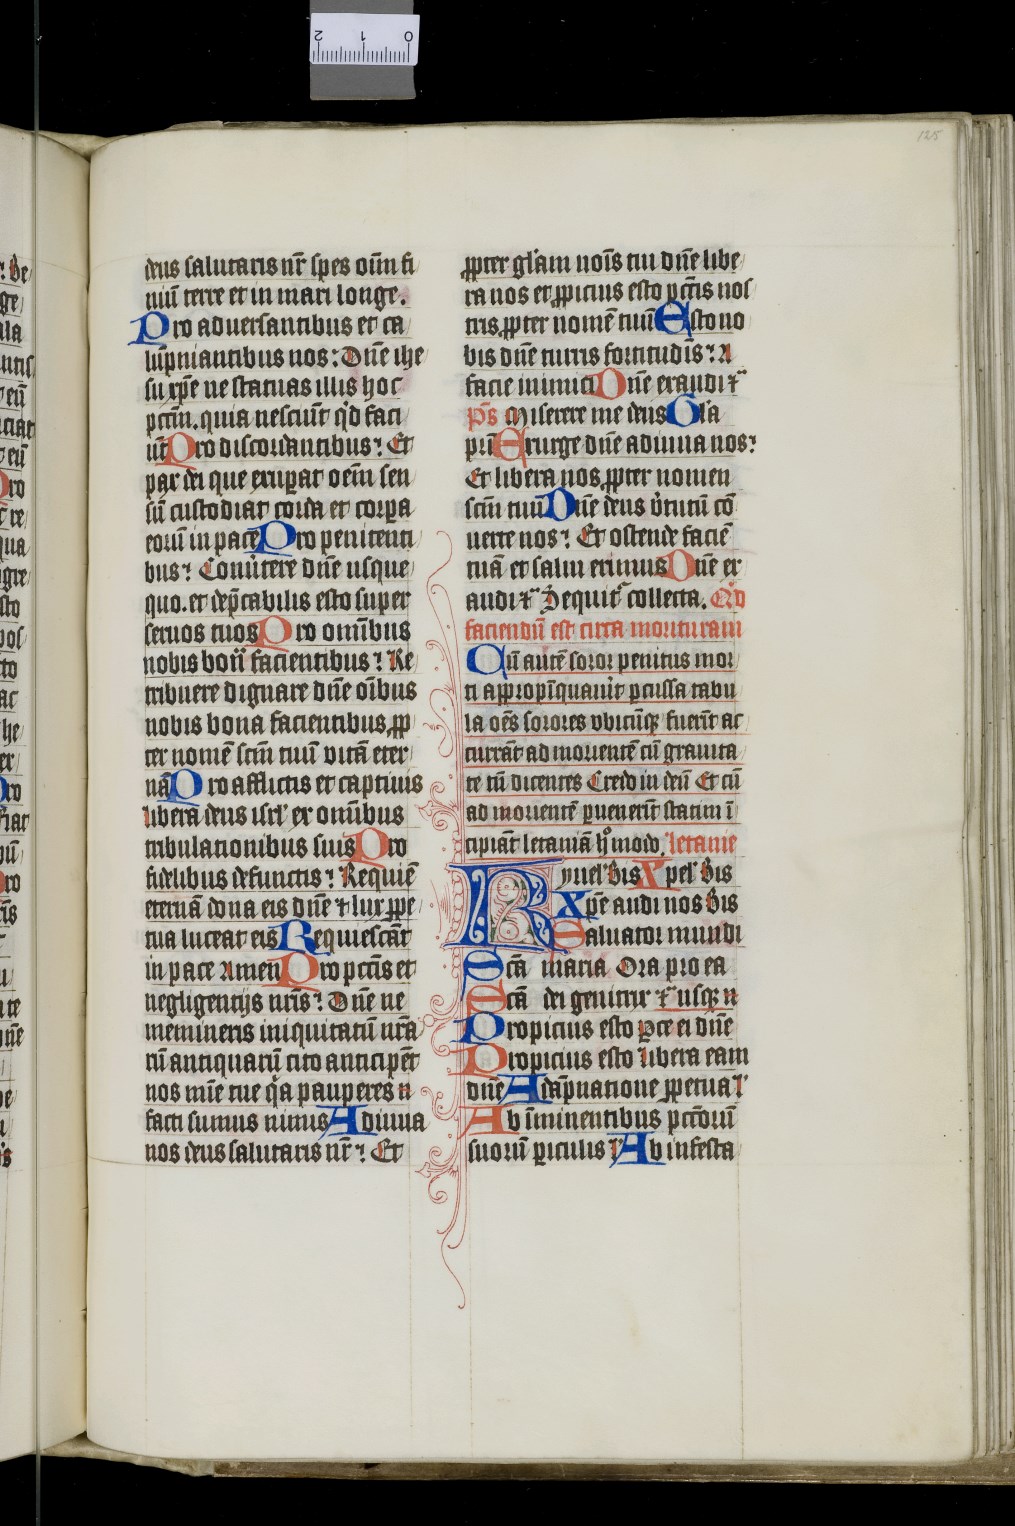 125
deus salutaris nr̄ spes oīm fi
niū terre et in mari longe.
Pro aduersantibus et ca
lūpniantibus nos: Dn̄e ihe
su xp̄e ne statuas illis hoc
pctm̄. quia nesciūt qd faci
ūt Pro discordantibus: Et
pax dei que exupat oēm sen
sū custodiat corda et corpa
eorū in pace Pro penitenti
bus: Conūtere dn̄e usque
quo. et dep̄cabilis esto super
seruos tuos Pro omībus
nobis bona facientibus: Re
tribuere dignare dn̄e oībus
nobis bona facientibus pp
ter nomē scm̄ tuū vitā eter
nā Pro afflictis et captiuis
libera deus isrl' ex omībus
tribulationibus suis Pro
fidelibus defunctis: Requiē
eternā dona eis dn̄e ⁊ lux ppe
tua luceat eis Requiescāt
in pace amen Pro pctīs et
negligentijs nrīs: Dn̄e ne
memineris iniquitatū nr̄a
rū antiquarū cito anticipēt
nos mīe tue qa pauperes
facti sumus nimis Adiuua
nos deus salutaris nr̄: Et
ppter gl'am noīs tui dn̄e libe
ra nos et ppicius esto pctīs nos
tris ppter nomē tuū Esto no
bis dn̄e turris fortitudīs: A
facie inimici Dn̄e exaudi ⁊
ps̄ Miserere mei deus Gl'a
pr̄i Exurge dn̄e adiuua nos:
Et libera nos ppter nomen
scm̄ tuū Dn̄e deus v̓tutū cō
uerte nos: Et ostende faciē
tuā et salui erimus Dn̄e ex
audi ⁊ Sequit̄ collecta. Qd
faciendū est circa morituram
Cū autē soror penitus mor
ti appropīquauīt pcussa tabu
la oēs sorores vbicūqꝫ fuerīt ac
currāt ad morientē cū grauita
te cū dicentes Credo in deū Et cū
ad morientē puenerīt statim ī
cipiāt letaniā h° modo, letanie
Kyriel' bis Xpel' bis
Xp̄e audi nos bis
Saluator mundi
Scā maria Ora pro ea
Scā dei genitrix ⁊ usqꝫ
Propicius esto pce ei dn̄e
Propicius esto libera eam
dn̄e A dāpnatione ppetua l'
Ab īminentibus pctōrū
suorū piculis l' Ab infesta